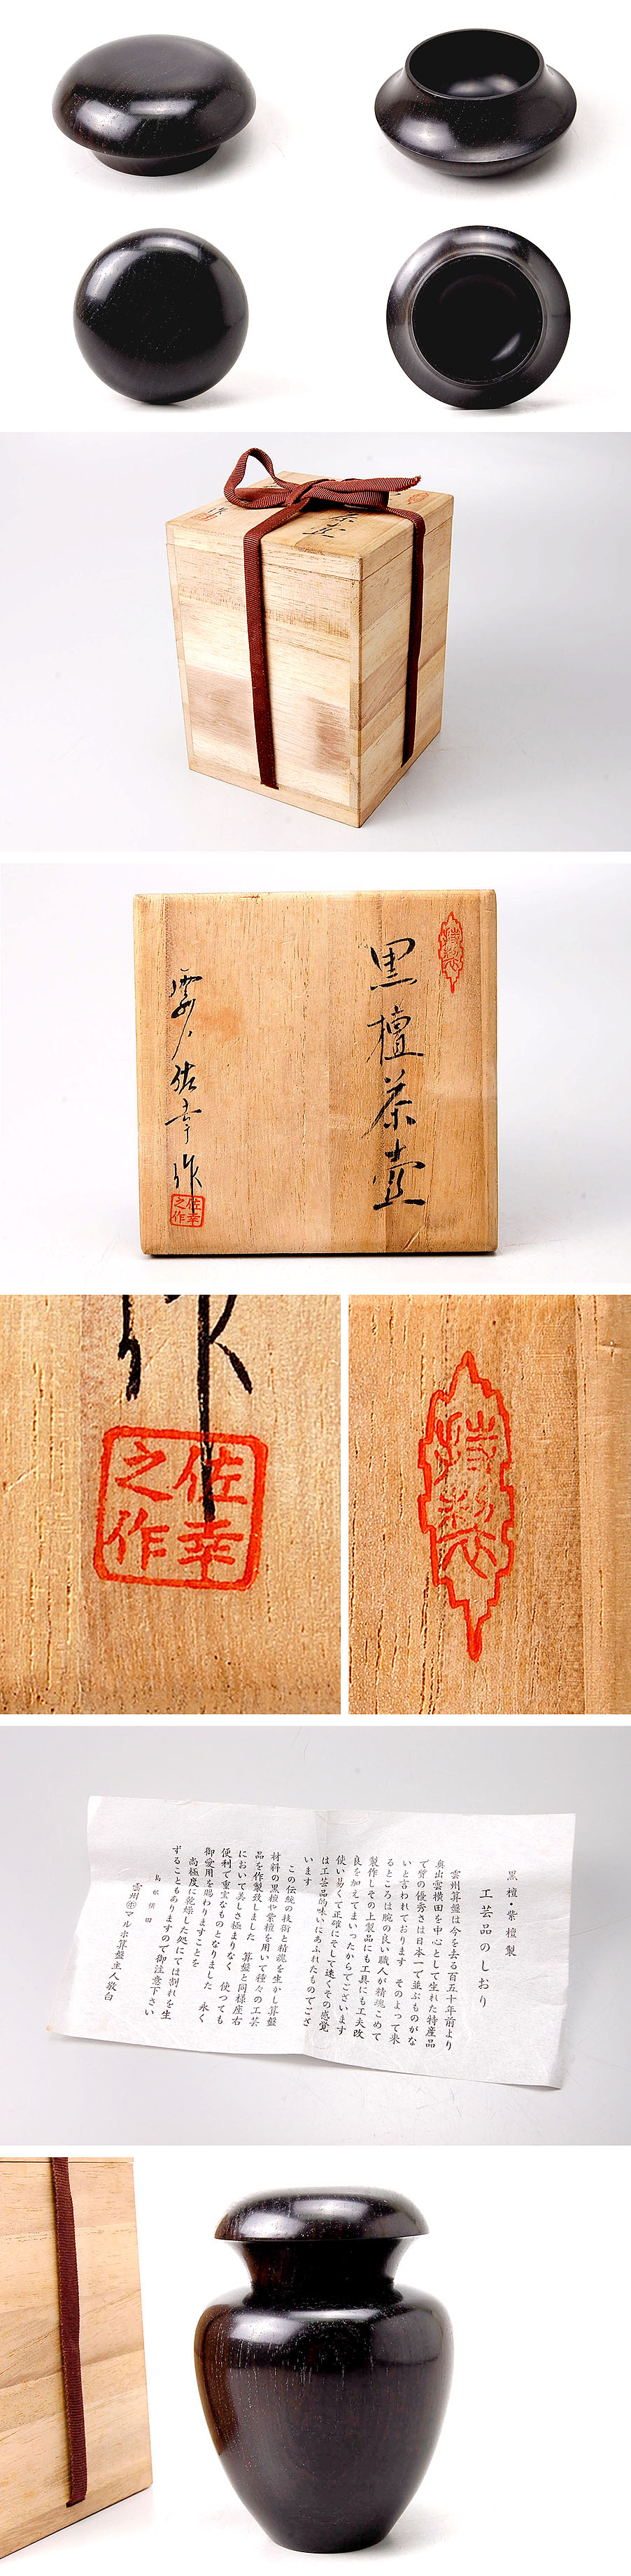 特製
黒檀茶壷
雲州佐幸作
佐幸
之作
佐幸
之作
特製
黒檀・紫檀製
工芸品のしおり
雲州算盤は今を去る百五十年前より
奥出雲横田を中心として生れた特産品
で質の優秀さは日本一で並ぶものがな
いと言われております　そのよって来
るところは腕の良い職人が精魂こめて
製作しその上製品にも工具にも工夫改
良を加えてまいったからでございます
使い易くて正確にそして速くその感覚
は工芸品的味いにあふれたものでござ
います
この伝統の技術と精魂を生かし算盤
材料の黒檀や紫檀を用いて種々の工芸
品を作製致しました　算盤と同様座右
において美しさ極まりなく　使っても
便利で重宝なものとなりました　永く
御愛用を賜わりますことを
尚極度に乾燥した処にては割れを生
ずることもありますので御注意下さい
島根横田
雲州マルホ算盤主人敬白